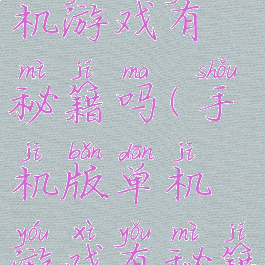 机游戏有
mì jí ma shǒu
秘籍吗(手
jī bǎn dān jī
机版单机
yóu xì yǒu mì jí
游戏有秘籍